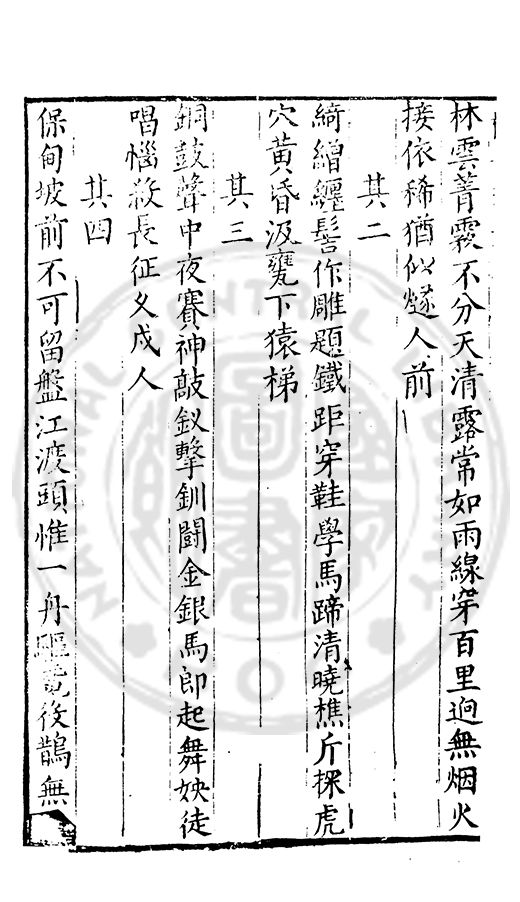 林雲菁霧不分天清露常如雨線穿百里逈無烟火
接依稀猶似燧人前
其二
綺繒纏髻作雕題鐵距穿鞋學馬蹄清曉樵斤探虎
穴黃昏汲甕下猿梯
其三
銅鼓聲中夜賽神敲釵擊釧鬪金銀馬郎起舞姎徒
唱惱殺長征久戍人
其四
保甸坡前不可留盤江渡頭惟一舟驅 後鵲無